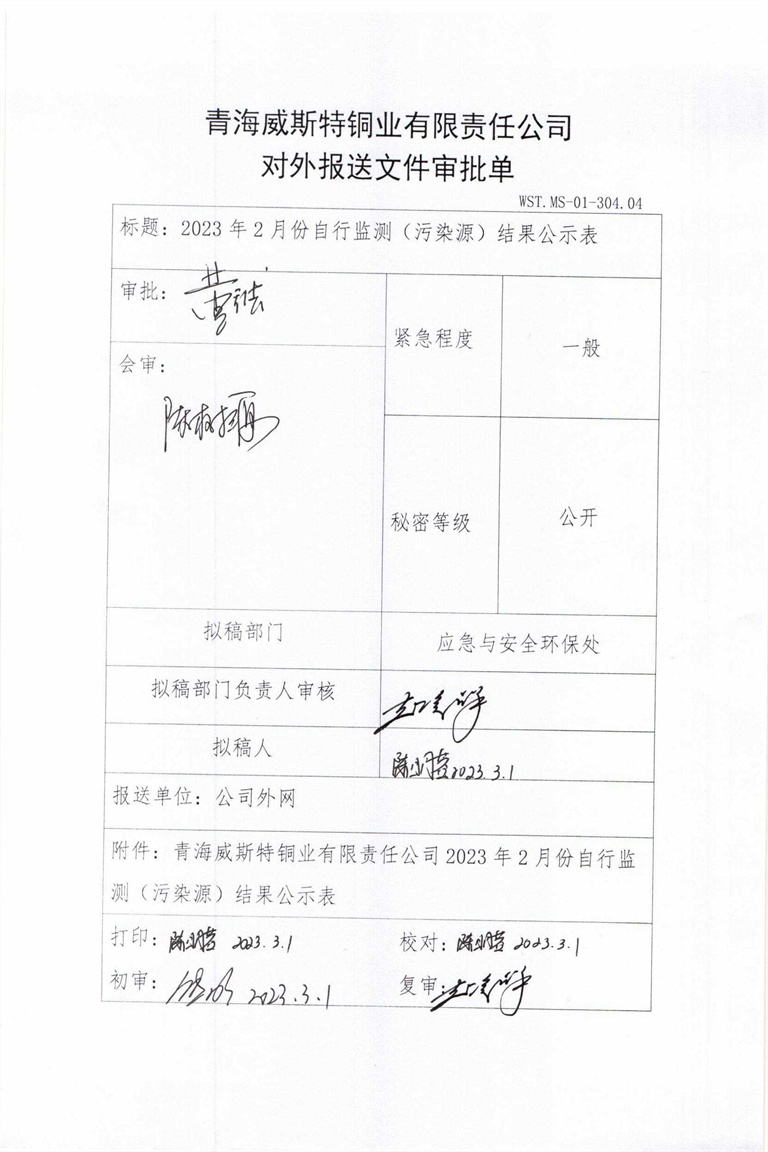 青海威斯特铜业有限责任公司
对外报送文件审批单
WST.MS-01-304.04
标题：2023年2月份自行监测（污染源）结果公示表
审批：
紧急程度
一般
会审：
秘密等级
公开
拟稿部门
应急与安全环保处
拟稿部门负责人审核
拟稿人
2023.3.1
报送单位：公司外网
附件：青海威斯特铜业有限责任公司2023年2月份自行监
测（污染源）结果公示表
打印： 2023.3.1
校对： 2023.3.1
初审： 2023.3.1
复审：